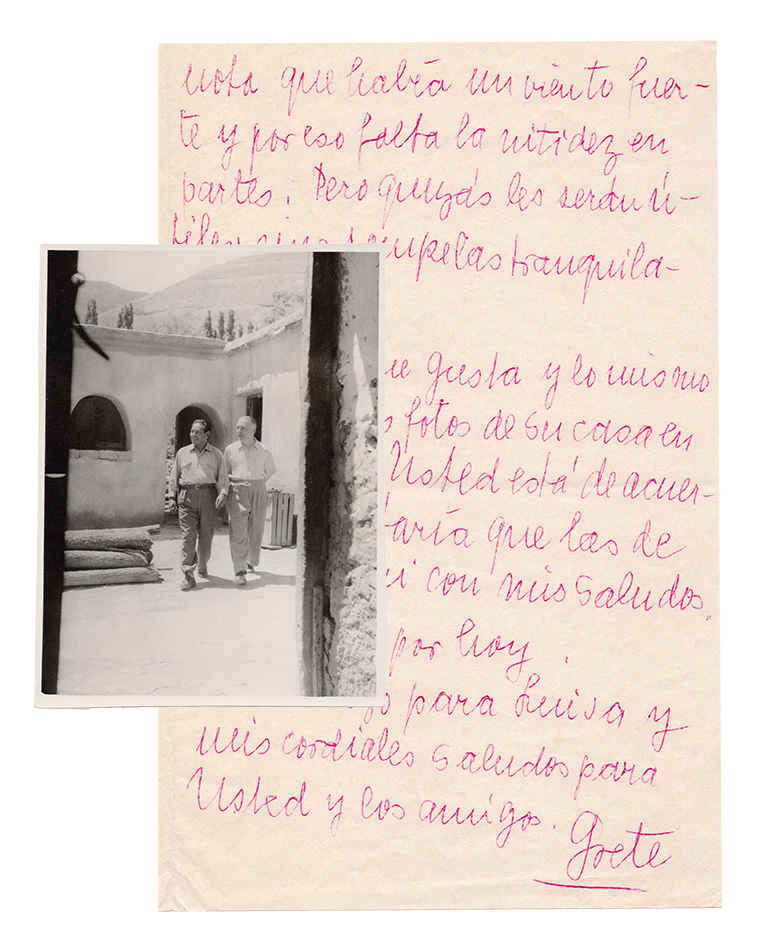 nota que había un viento fuer-
te y por eso falta la nitidez en
partes. Pero quizás les serán ú-
las tranquila-
gusta y lo mismo
fotos de su casa en
Usted está de acuer-
taría que las de
con mis saludos.
por hoy.
para Luisa y
mis cordiales saludos para
Usted y los amigos.
Grete